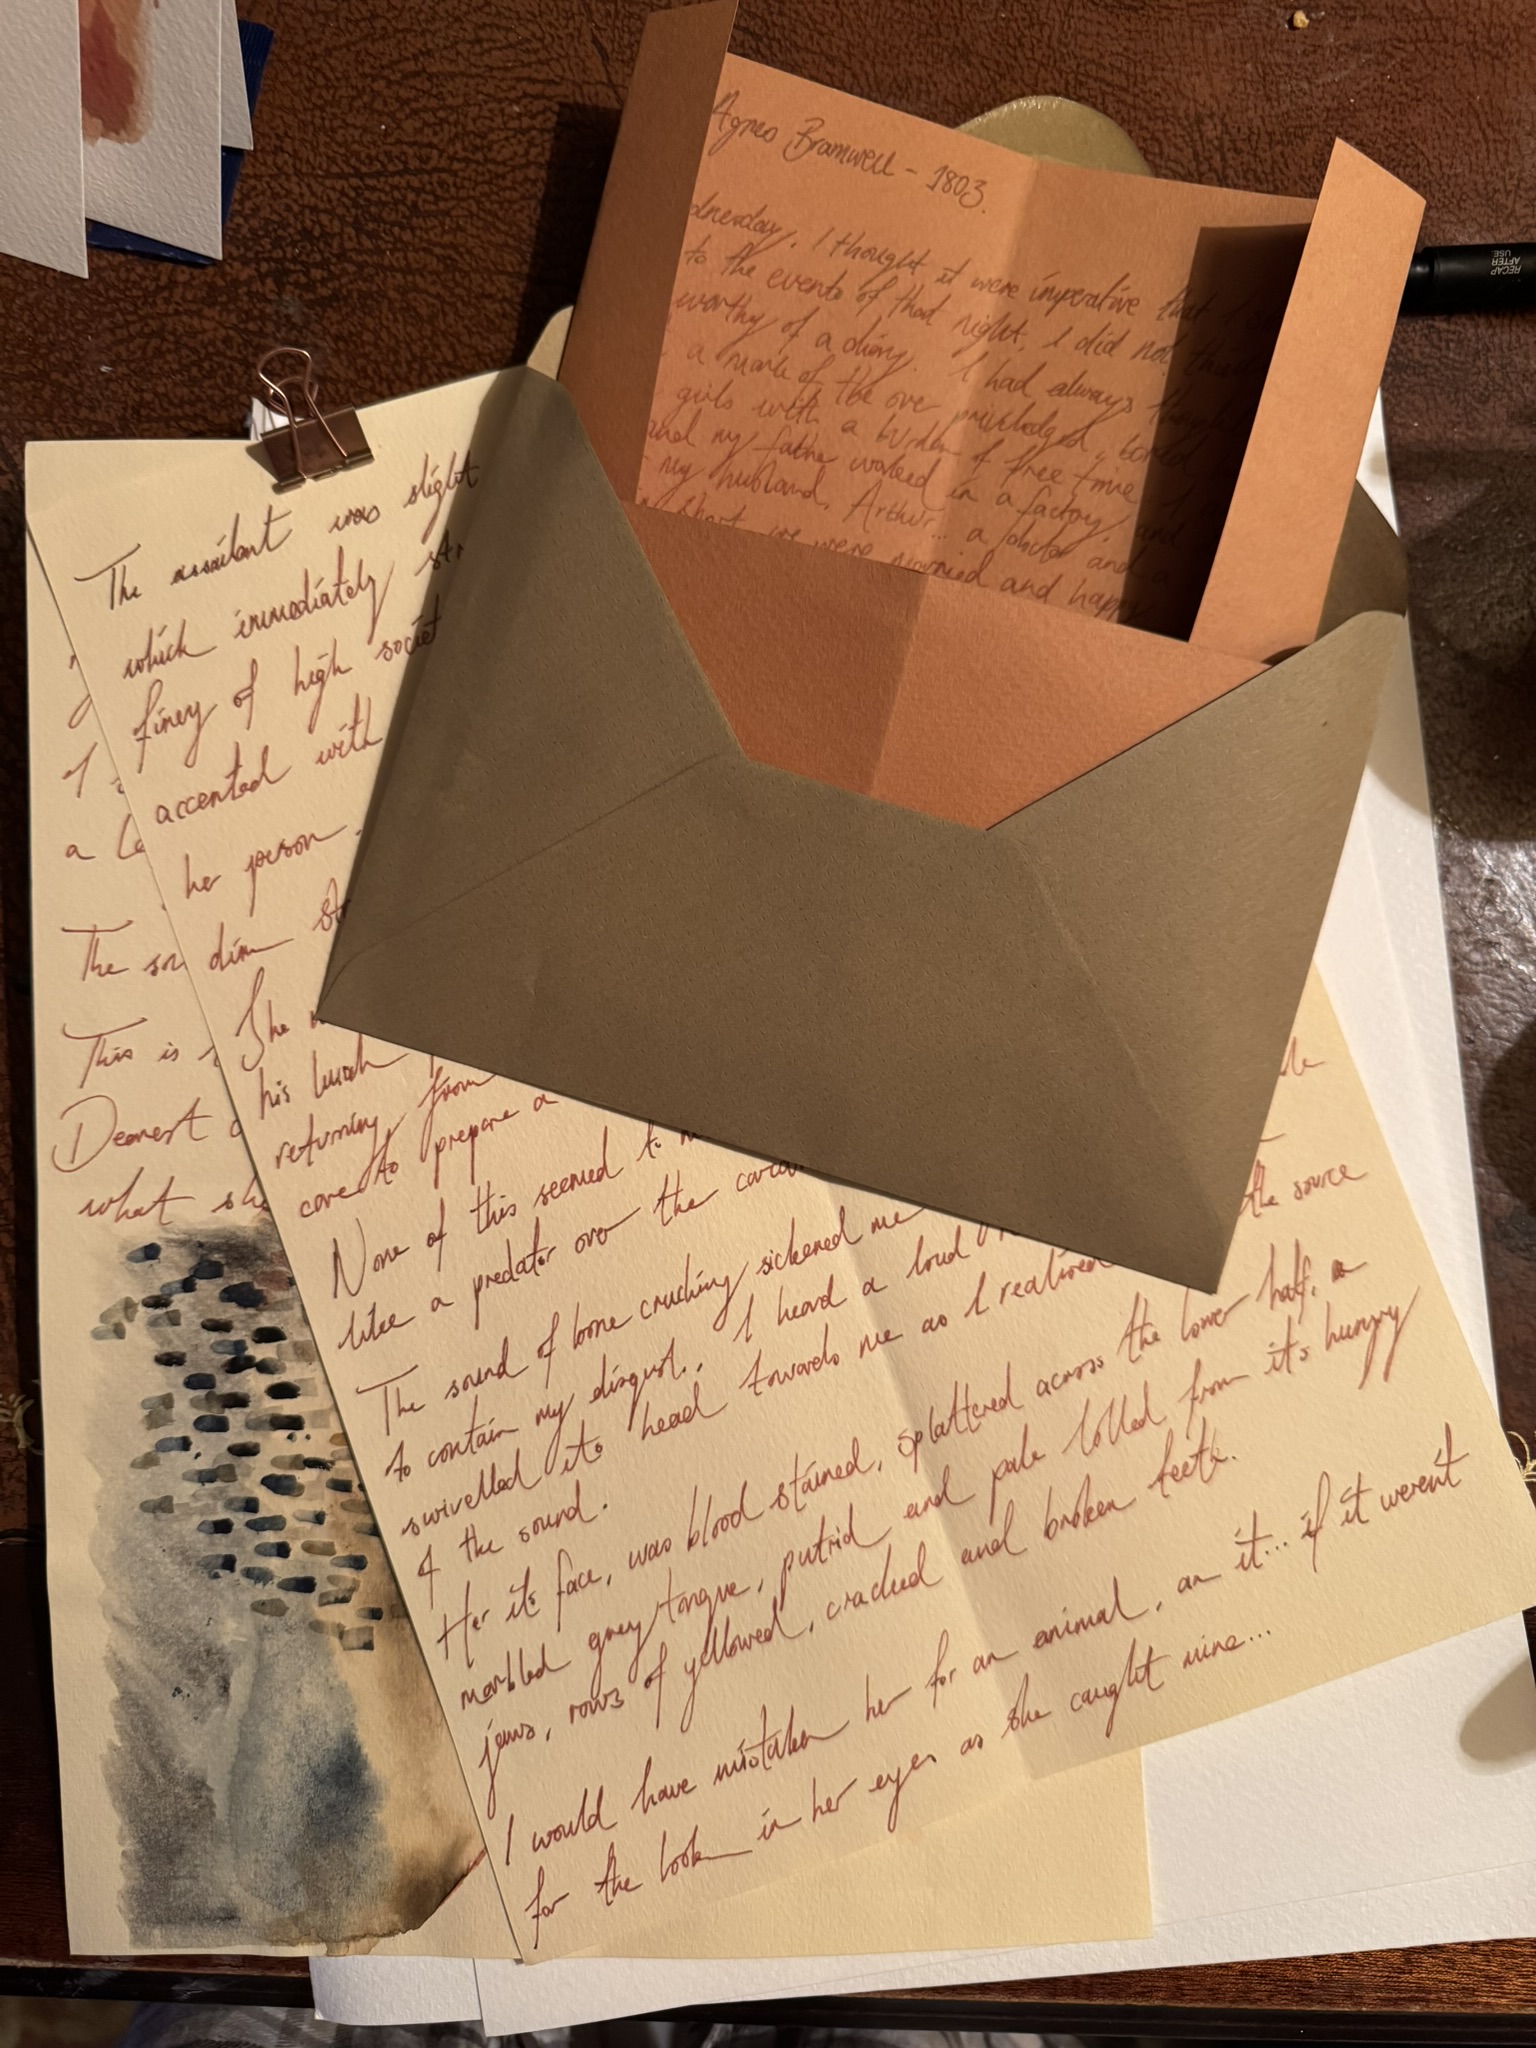 Agnes Bramwell - 1803.
dnesday. I thought it were imperative that I
to the events of that night, I did not
worthy of a diary. I had always
a mark of the over priviledged, bored
girls with a burden of free time
and my father worked in a factory, and
my husband, Arthur... a doctor and a
short, we were married and happy
RECAP
AFTER
USE
The assailant was slight
which immediately str
finery of high societ
accented with
her person.
dim str
She
his lunch
returning from
cove to prepare a
None of this seemed to
like a predator over the carca
The sound of bone cruching sickened me
to contain my disgust.. I heard a loud
swivelled its head towards me as I realised the source
of the sound.
Her its face, was blood stained, splattered across the lower half, a
marbled grey tongue, putrid and pale lolled from it's hungry
jaws, rows of yellowed, cracked and broken teeth.
I would have mistaken her for an animal, an it... if it weren't
for the look in her eyes as she caught mine...
of
a
The
This is
Dearest
what sh